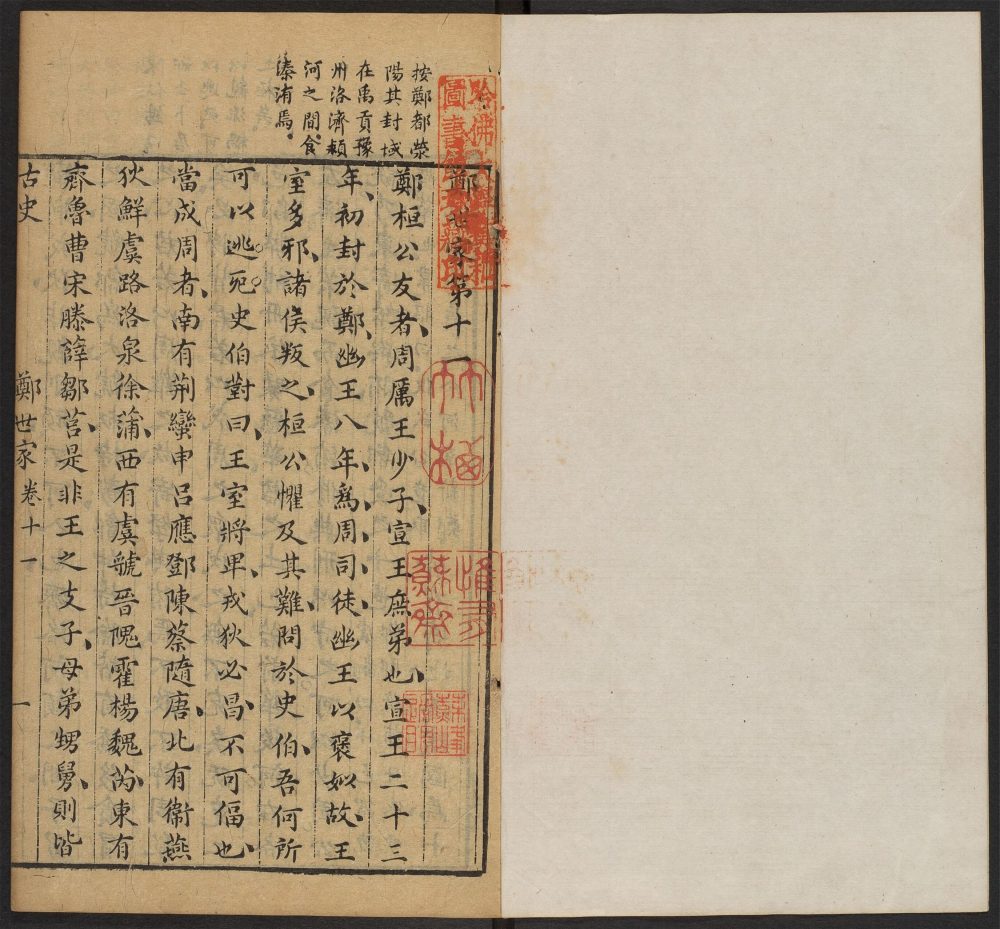 按鄭都滎
陽其封域
在禹貢豫
州洛濟潁
河之間食
溱洧焉
鄭世家第十一
鄭桓公友者周厲王少子宣王庶弟也宣王二十三
年初封於鄭幽王八年為周司徒幽王以褒姒故王
室多邪諸侯叛之桓公懼及其難問於史伯吾何所
可以逃死史伯對曰王室將卑戎狄必昌不可偪也
當成周者南有荆蠻申呂應鄧陳蔡隨唐北有衞燕
狄鮮虞路洛泉徐蒲西有虞虢晉隗霍楊魏芮東有
齊魯曹宋滕薛鄒莒是非王之支子母弟甥舅則皆
古史 鄭世家卷十一 一